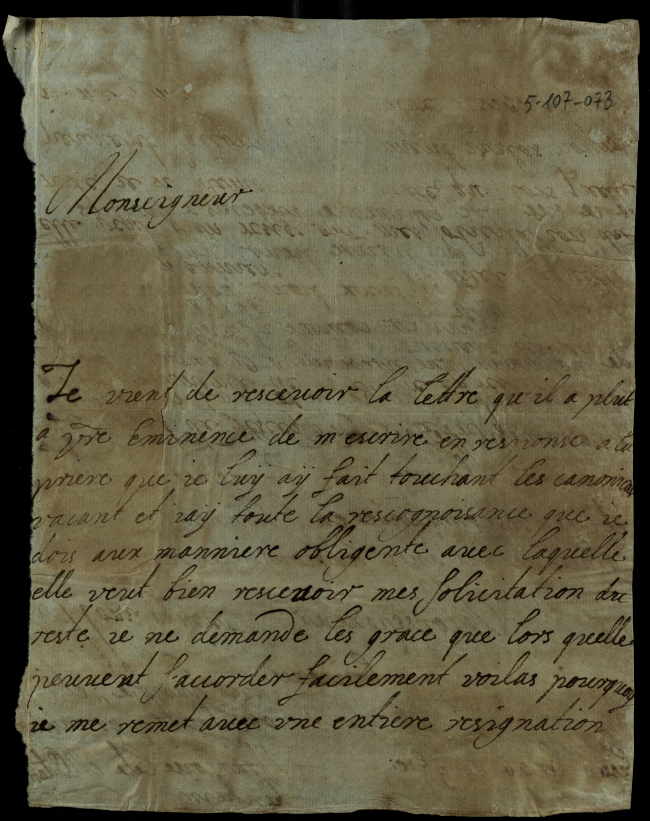 5-107-073
Monseigneur
Je vient de rescevoir la lettre qu'il a plut
a vre Eminence de m'escrire en response a la
priere que ie luy aÿ fait touchant les canonicas
vacant et iaÿ toute la rescognoisance que ie
dois aux manniere obligente avec laquelle
elle veut bien rescevoir mes solicitation du
reste ie ne demande les grace que lors quelle
peuvent s'accorder facilement voilas pourquoy
ie me remet avec vne entiere resignation